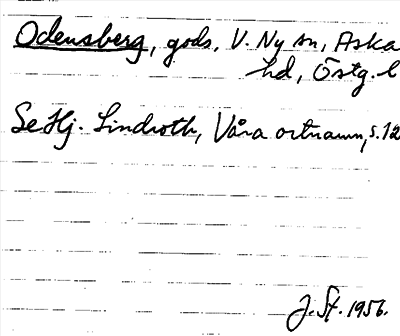 Odensberg, gods, V. Ny sn, Aska
hd, Östg. l
Se Hj. Lindroth, Våra ortnamn, s. 12
J. St. 1956.